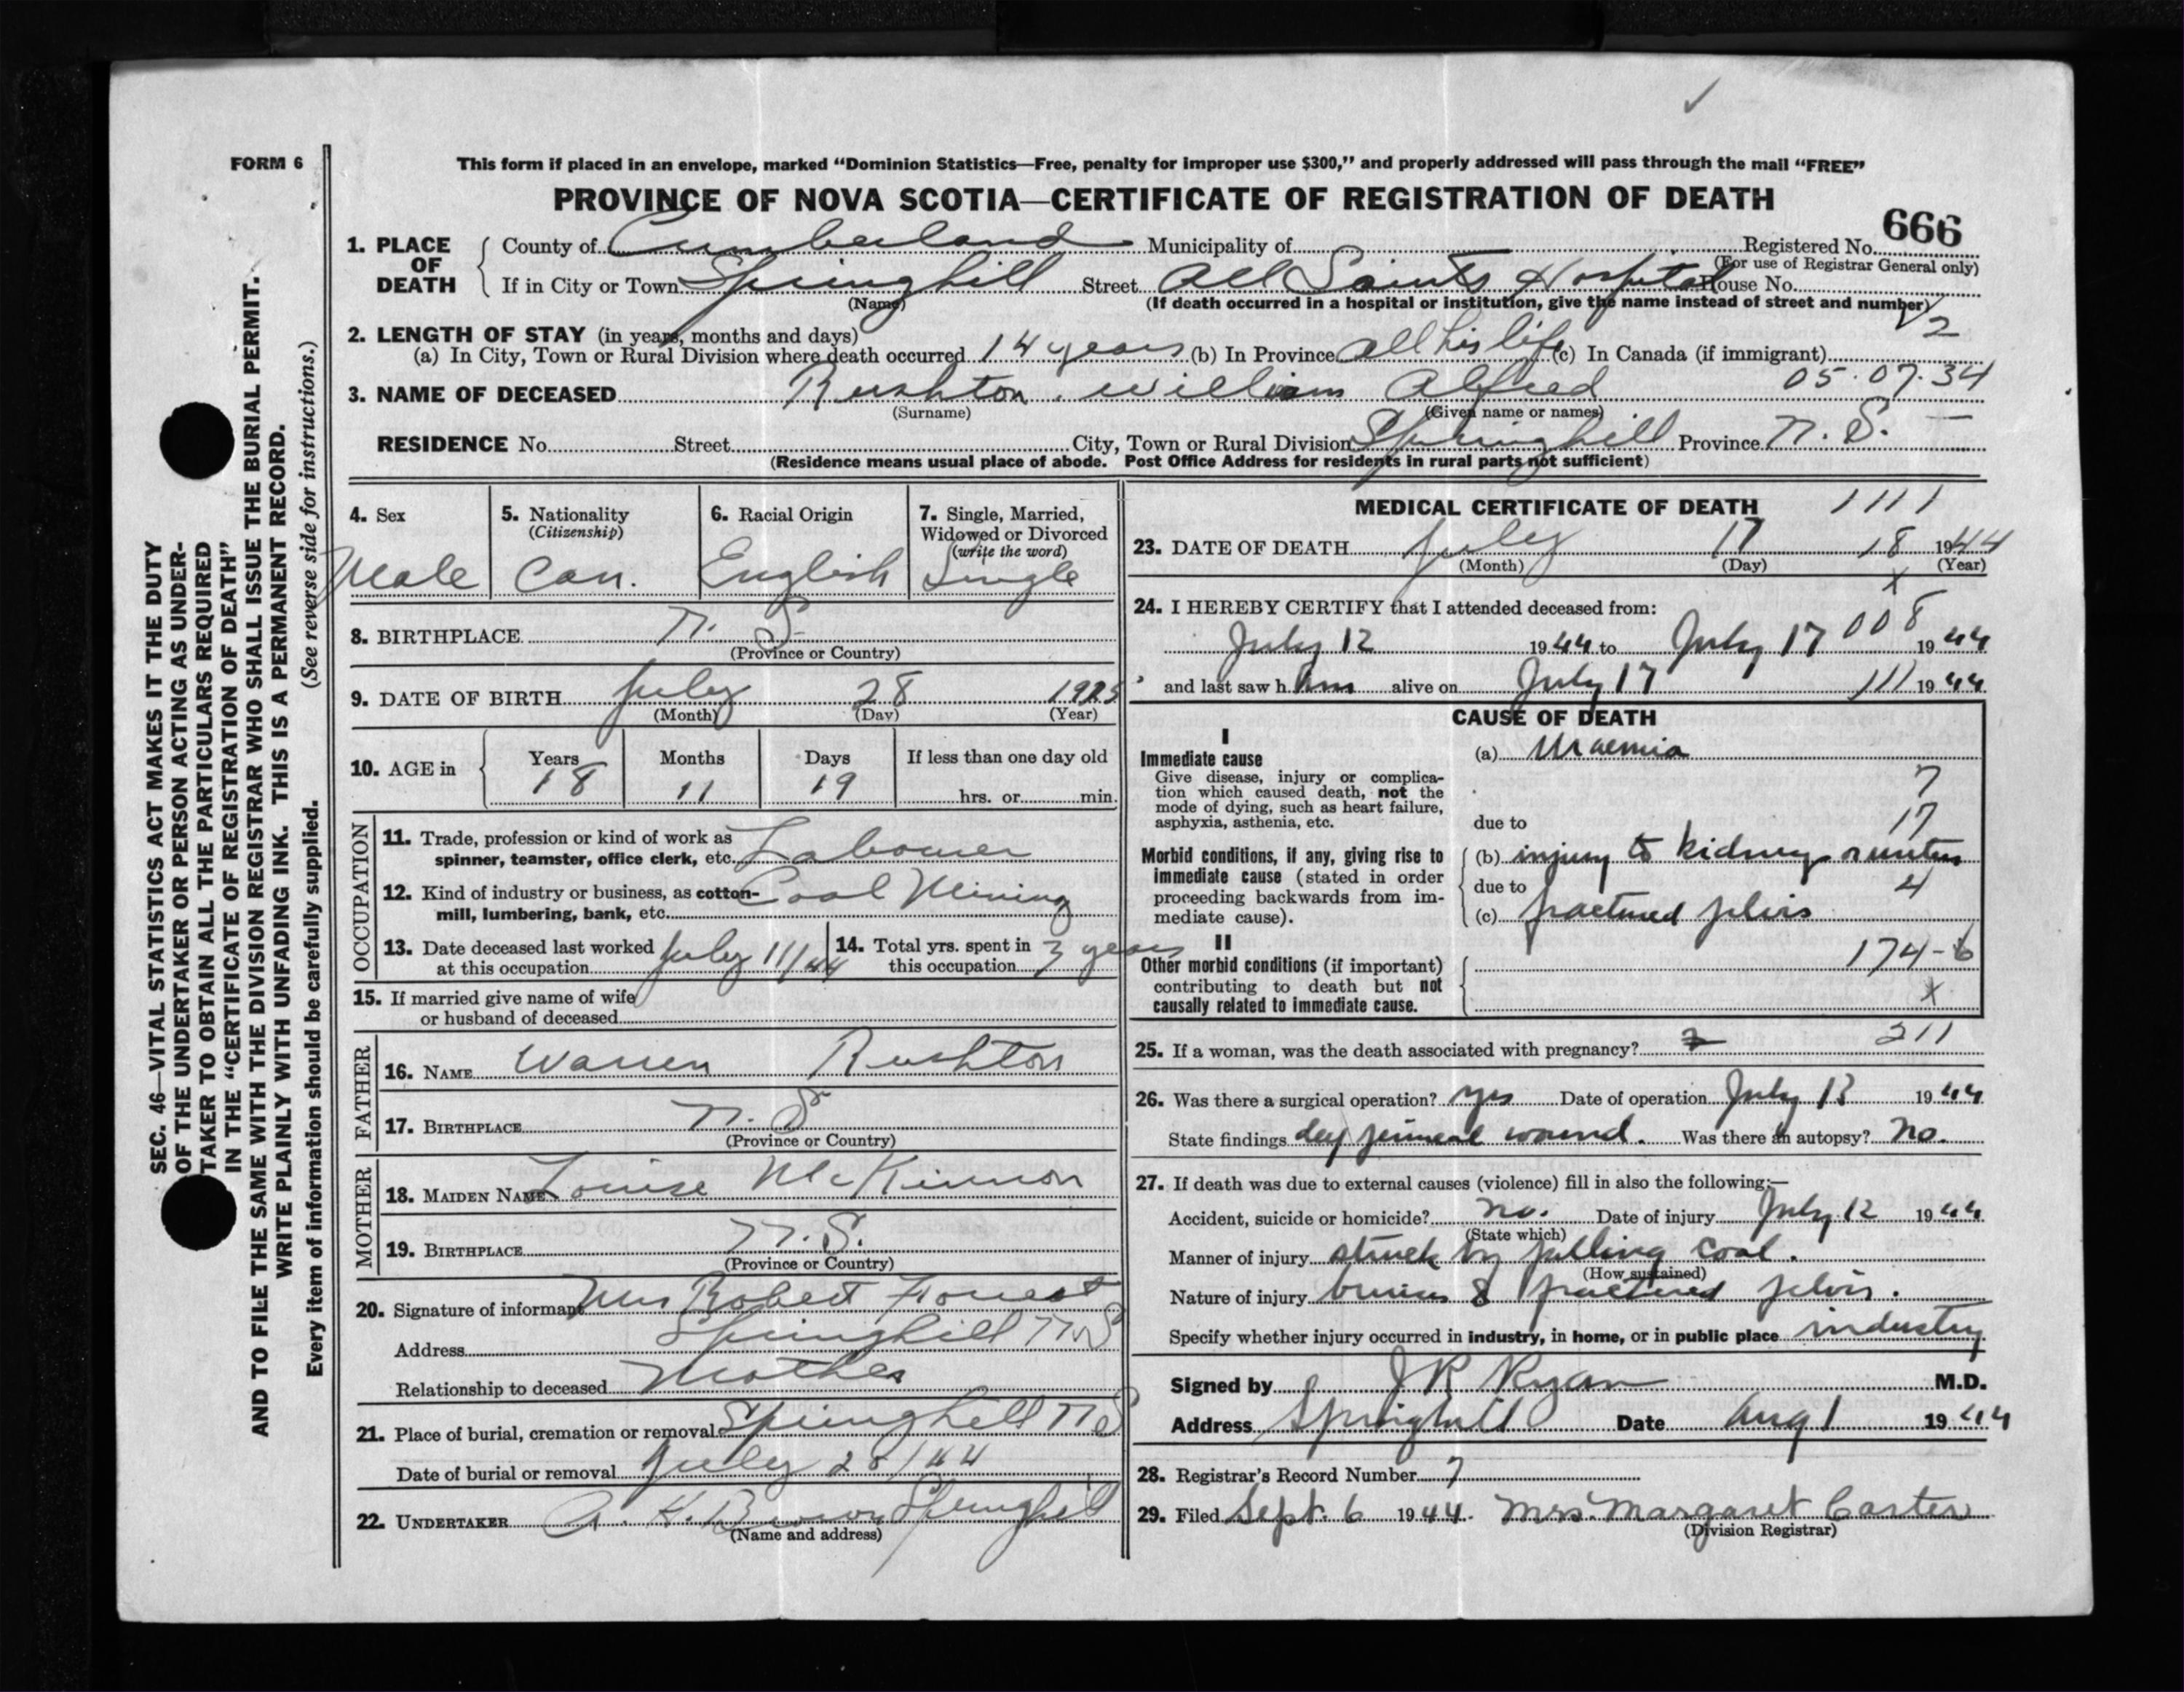 FORM 6
This form if placed in an envelope, marked “Dominion Statistics—Free, penalty for improper use $300,” and properly addressed will pass through the mail “FREE”
PROVINCE OF NOVA SCOTIA—CERTIFICATE OF REGISTRATION OF DEATH
666
1. PLACE OF DEATH { County of Cumberland Municipality of Registered No.
(For use of Registrar General only)
If in City or Town Springhill Street All Saints Hospital House No.
(Name) (If death occurred in a hospital or institution, give the name instead of street and number)
2. LENGTH OF STAY (in years, months and days)
2
(a) In City, Town or Rural Division where death occurred 14 years (b) In Province all his life (c) In Canada (if immigrant)
05.07.34
3. NAME OF DECEASED Rushton. William Alfred
(Surname) (Given name or names)
RESIDENCE No. Street City, Town or Rural Division Springhill Province N. S.
(Residence means usual place of abode. Post Office Address for residents in rural parts not sufficient)
4. Sex
Male
5. Nationality
(Citizenship)
Can.
6. Racial Origin
English
7. Single, Married,
Widowed or Divorced
(write the word)
Single
8. BIRTHPLACE N. S.
(Province or Country)
9. DATE OF BIRTH July 28 1925
(Month) (Day) (Year)
10. AGE in { Years Months Days If less than one day old
18 11 19 hrs. or min.
OCCUPATION
11. Trade, profession or kind of work as
spinner, teamster, office clerk, etc. Labourer
12. Kind of industry or business, as cotton-
mill, lumbering, bank, etc. Coal Mining
13. Date deceased last worked
at this occupation July 11/44
14. Total yrs. spent in
this occupation 3 years
15. If married give name of wife
or husband of deceased
FATHER
16. NAME Warren Rushton
17. BIRTHPLACE N. S.
(Province or Country)
MOTHER
18. MAIDEN NAME Louise McKinnon
19. BIRTHPLACE N. S.
(Province or Country)
20. Signature of informant Mrs Robert Forrest
Address Springhill N.S
Relationship to deceased Mother
21. Place of burial, cremation or removal Springhill N S
Date of burial or removal July 28/44
22. UNDERTAKER A. H. Brown Springhill
(Name and address)
MEDICAL CERTIFICATE OF DEATH 1111
23. DATE OF DEATH July 17 18 1944
(Month) (Day) (Year)
x
24. I HEREBY CERTIFY that I attended deceased from:
008
July 12 1944 to July 17 1944
and last saw him alive on July 17 111 1944
CAUSE OF DEATH
I
Immediate cause
Give disease, injury or complica-
tion which caused death, not the
mode of dying, such as heart failure,
asphyxia, asthenia, etc.
(a) Uraemia
7
17
due to
Morbid conditions, if any, giving rise to
immediate cause (stated in order
proceeding backwards from im-
mediate cause).
(b) injury to kidney
4
due to
(c) fractured pelvis
II
Other morbid conditions (if important)
contributing to death but not
causally related to immediate cause.
174-6
x
211
25. If a woman, was the death associated with pregnancy?
26. Was there a surgical operation? yes Date of operation July 13 1944
State findings deep perineal wound. Was there an autopsy? No.
27. If death was due to external causes (violence) fill in also the following:—
Accident, suicide or homicide? no. Date of injury July 12 1944
(State which)
Manner of injury struck by falling coal.
(How sustained)
Nature of injury bruises & fractured pelvis.
Specify whether injury occurred in industry, in home, or in public place industry
Signed by J R Ryan M.D.
Address Springhill Date Aug 1 1944
28. Registrar's Record Number 7
29. Filed Sept. 6 1944. Mrs. Margaret Carter
(Division Registrar)
SEC. 46—VITAL STATISTICS ACT MAKES IT THE DUTY
OF THE UNDERTAKER OR PERSON ACTING AS UNDER-
TAKER TO OBTAIN ALL THE PARTICULARS REQUIRED
IN THE “CERTIFICATE OF REGISTRATION OF DEATH”
AND TO FILE THE SAME WITH THE DIVISION REGISTRAR WHO SHALL ISSUE THE BURIAL PERMIT.
WRITE PLAINLY WITH UNFADING INK. THIS IS A PERMANENT RECORD.
Every item of information should be carefully supplied. (See reverse side for instructions.)